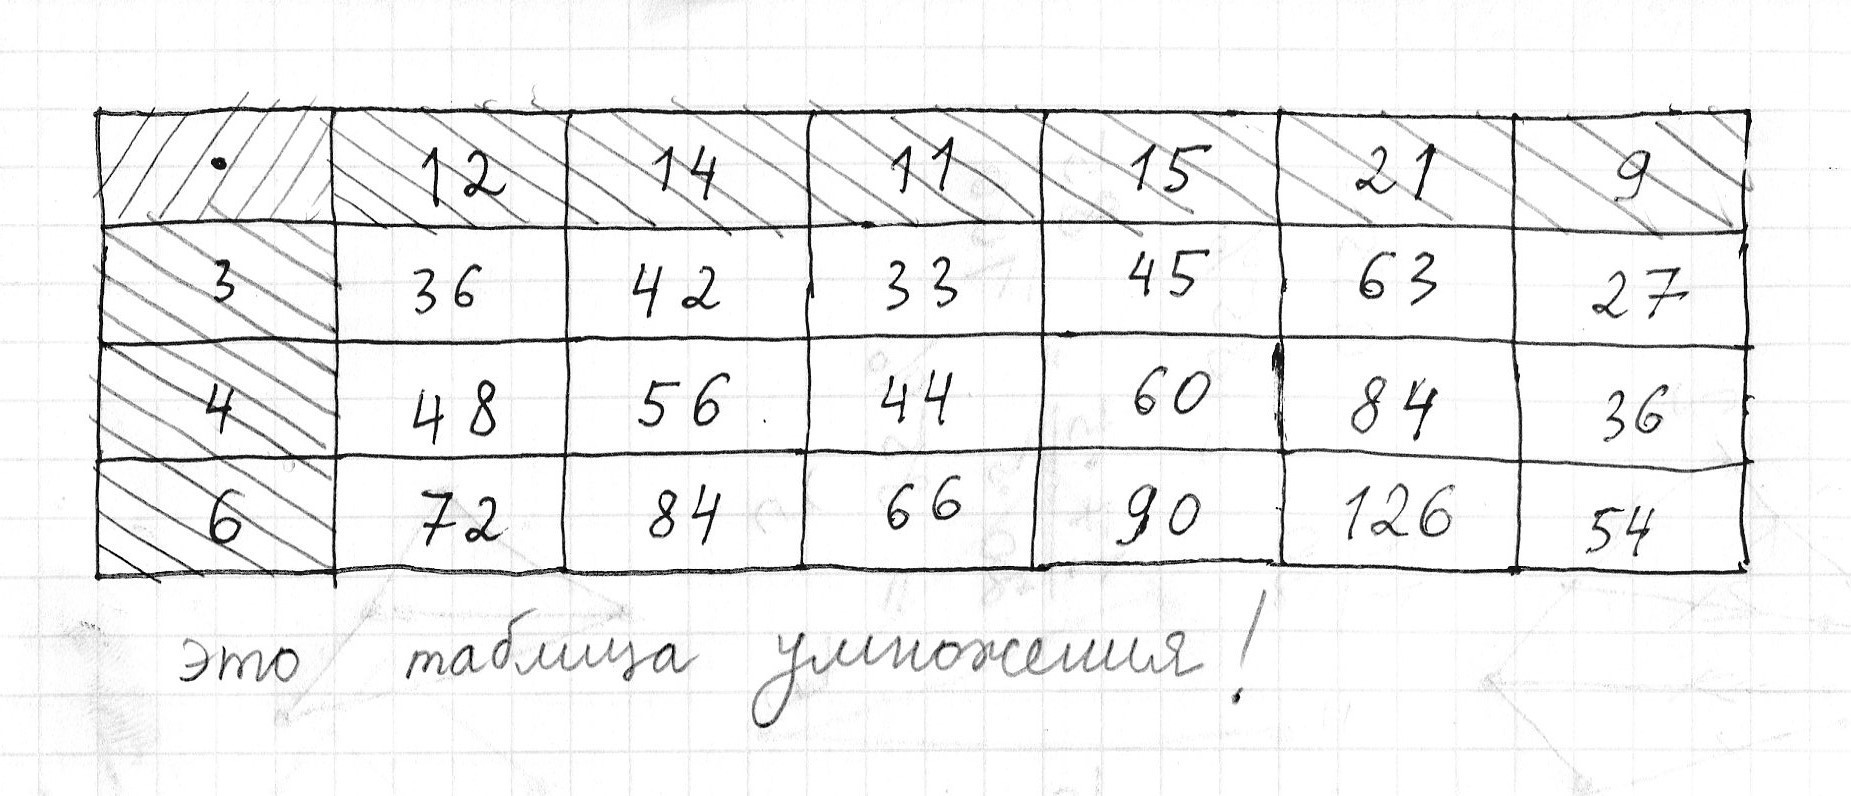 · 12 14 11 15 21 9
3 36 42 33 45 63 27
4 48 56 44 60 84 36
6 72 84 66 90 126 54
это таблица умножения!